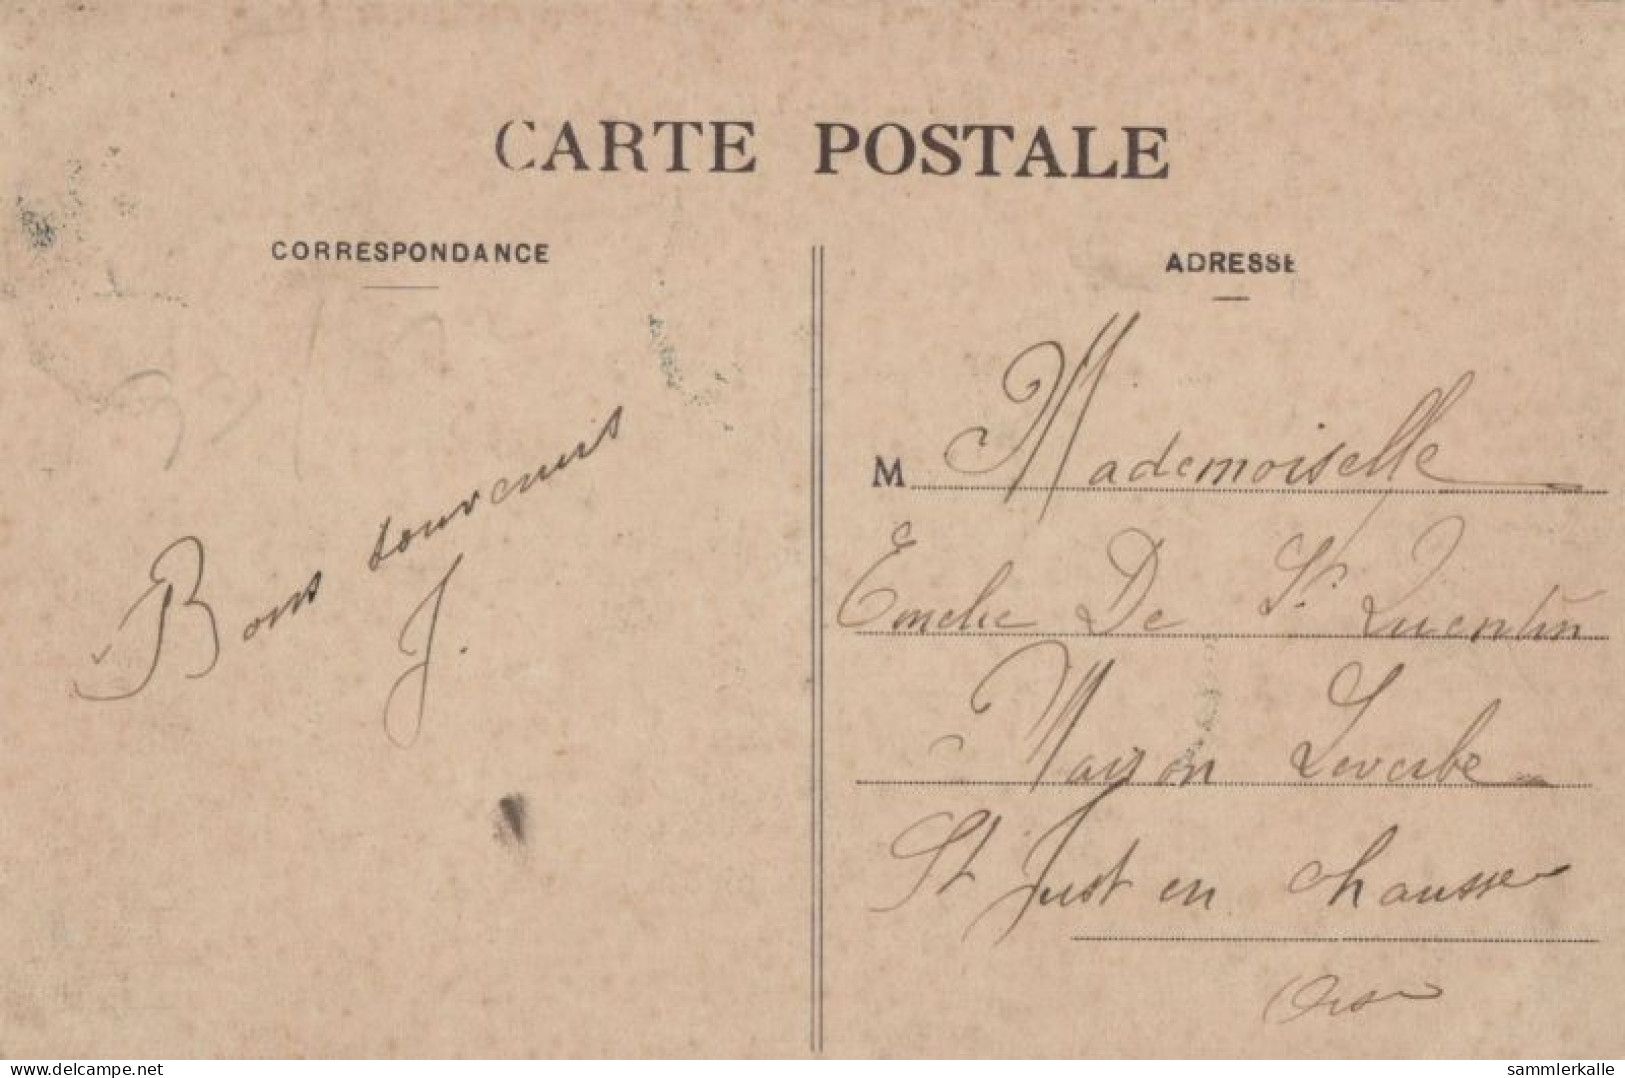 CARTE POSTALE
CORRESPONDANCE
ADRESSE
Bons souvenirs
J.
M Mademoiselle
Emelie De St. Quentin
Maison Leverbe
St Just en chaussee
Oise
delcampe.net
sammlerkalle